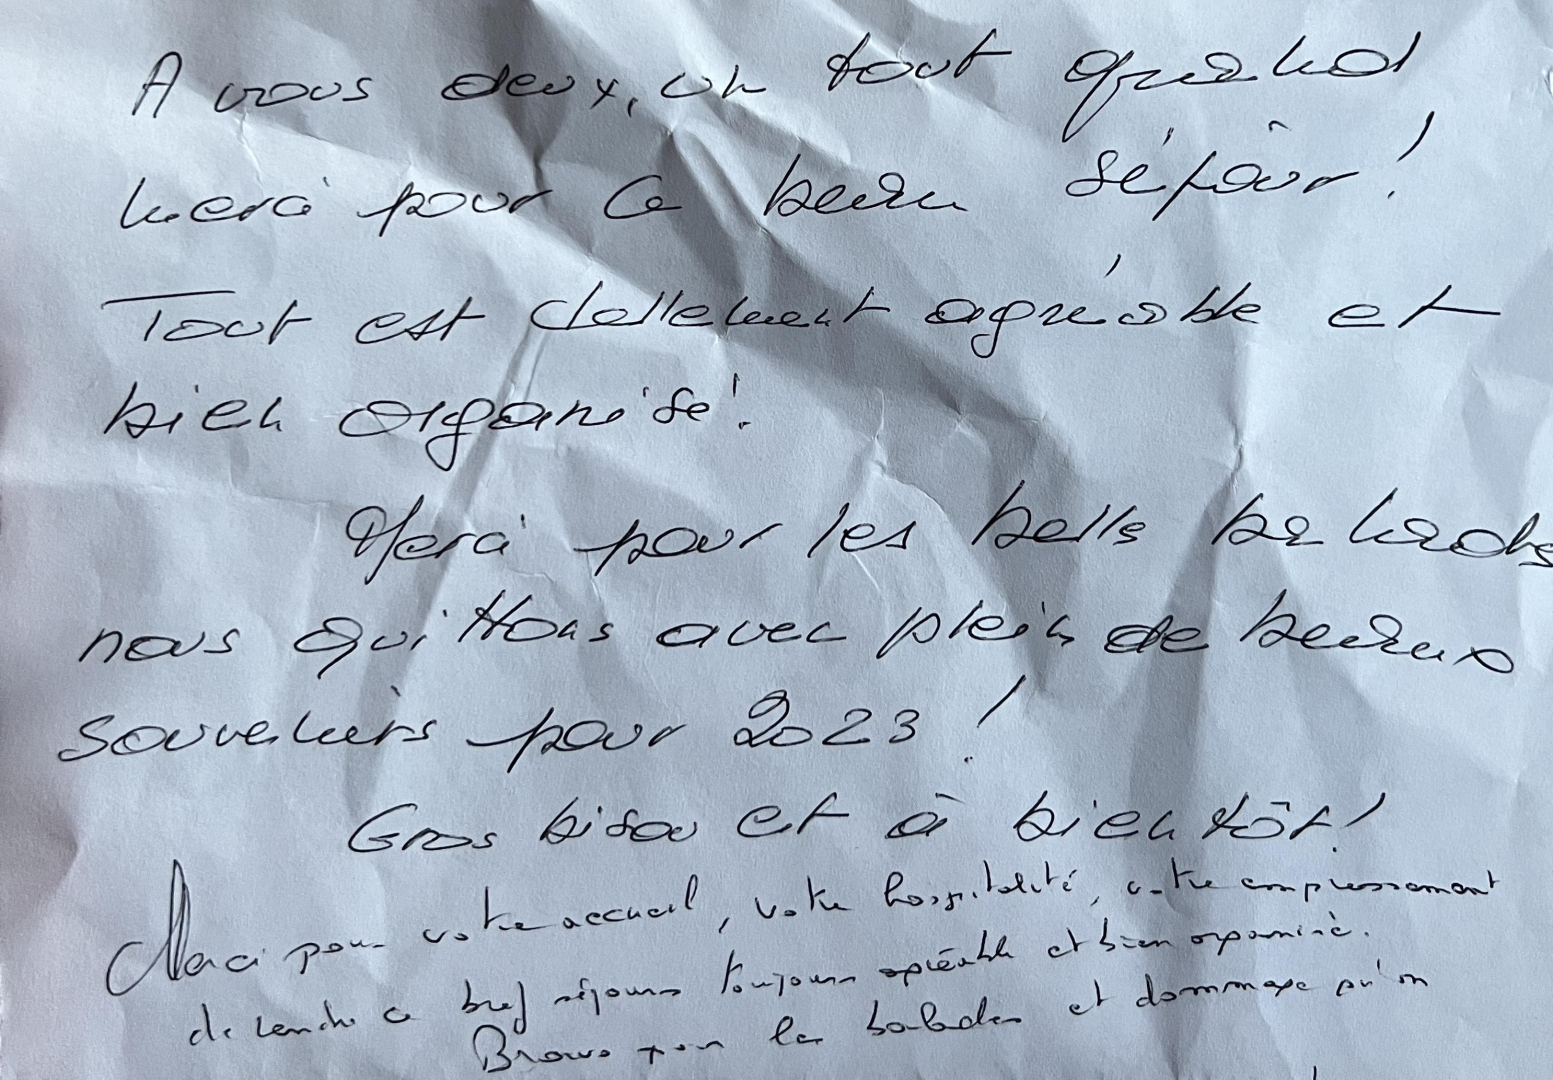 A vous deux, un tout grand
merci pour ce beau séjour!
Tout est tellement agréable et
bien organisé!
Merci pour les belles balades
nous quittons avec plein de beaux
souvenirs pour 2023!
Gros bisou et à bientôt!
Merci pour votre accueil, votre hospitalité, votre empressement
de rendre ce bref séjour toujours agréable et bien organisé.
Bravo pour les balades et dommage qu'on